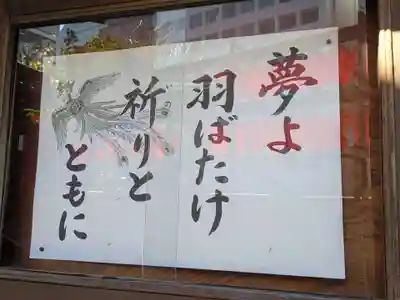 夢よ
羽ばたけ
祈りと
ともに